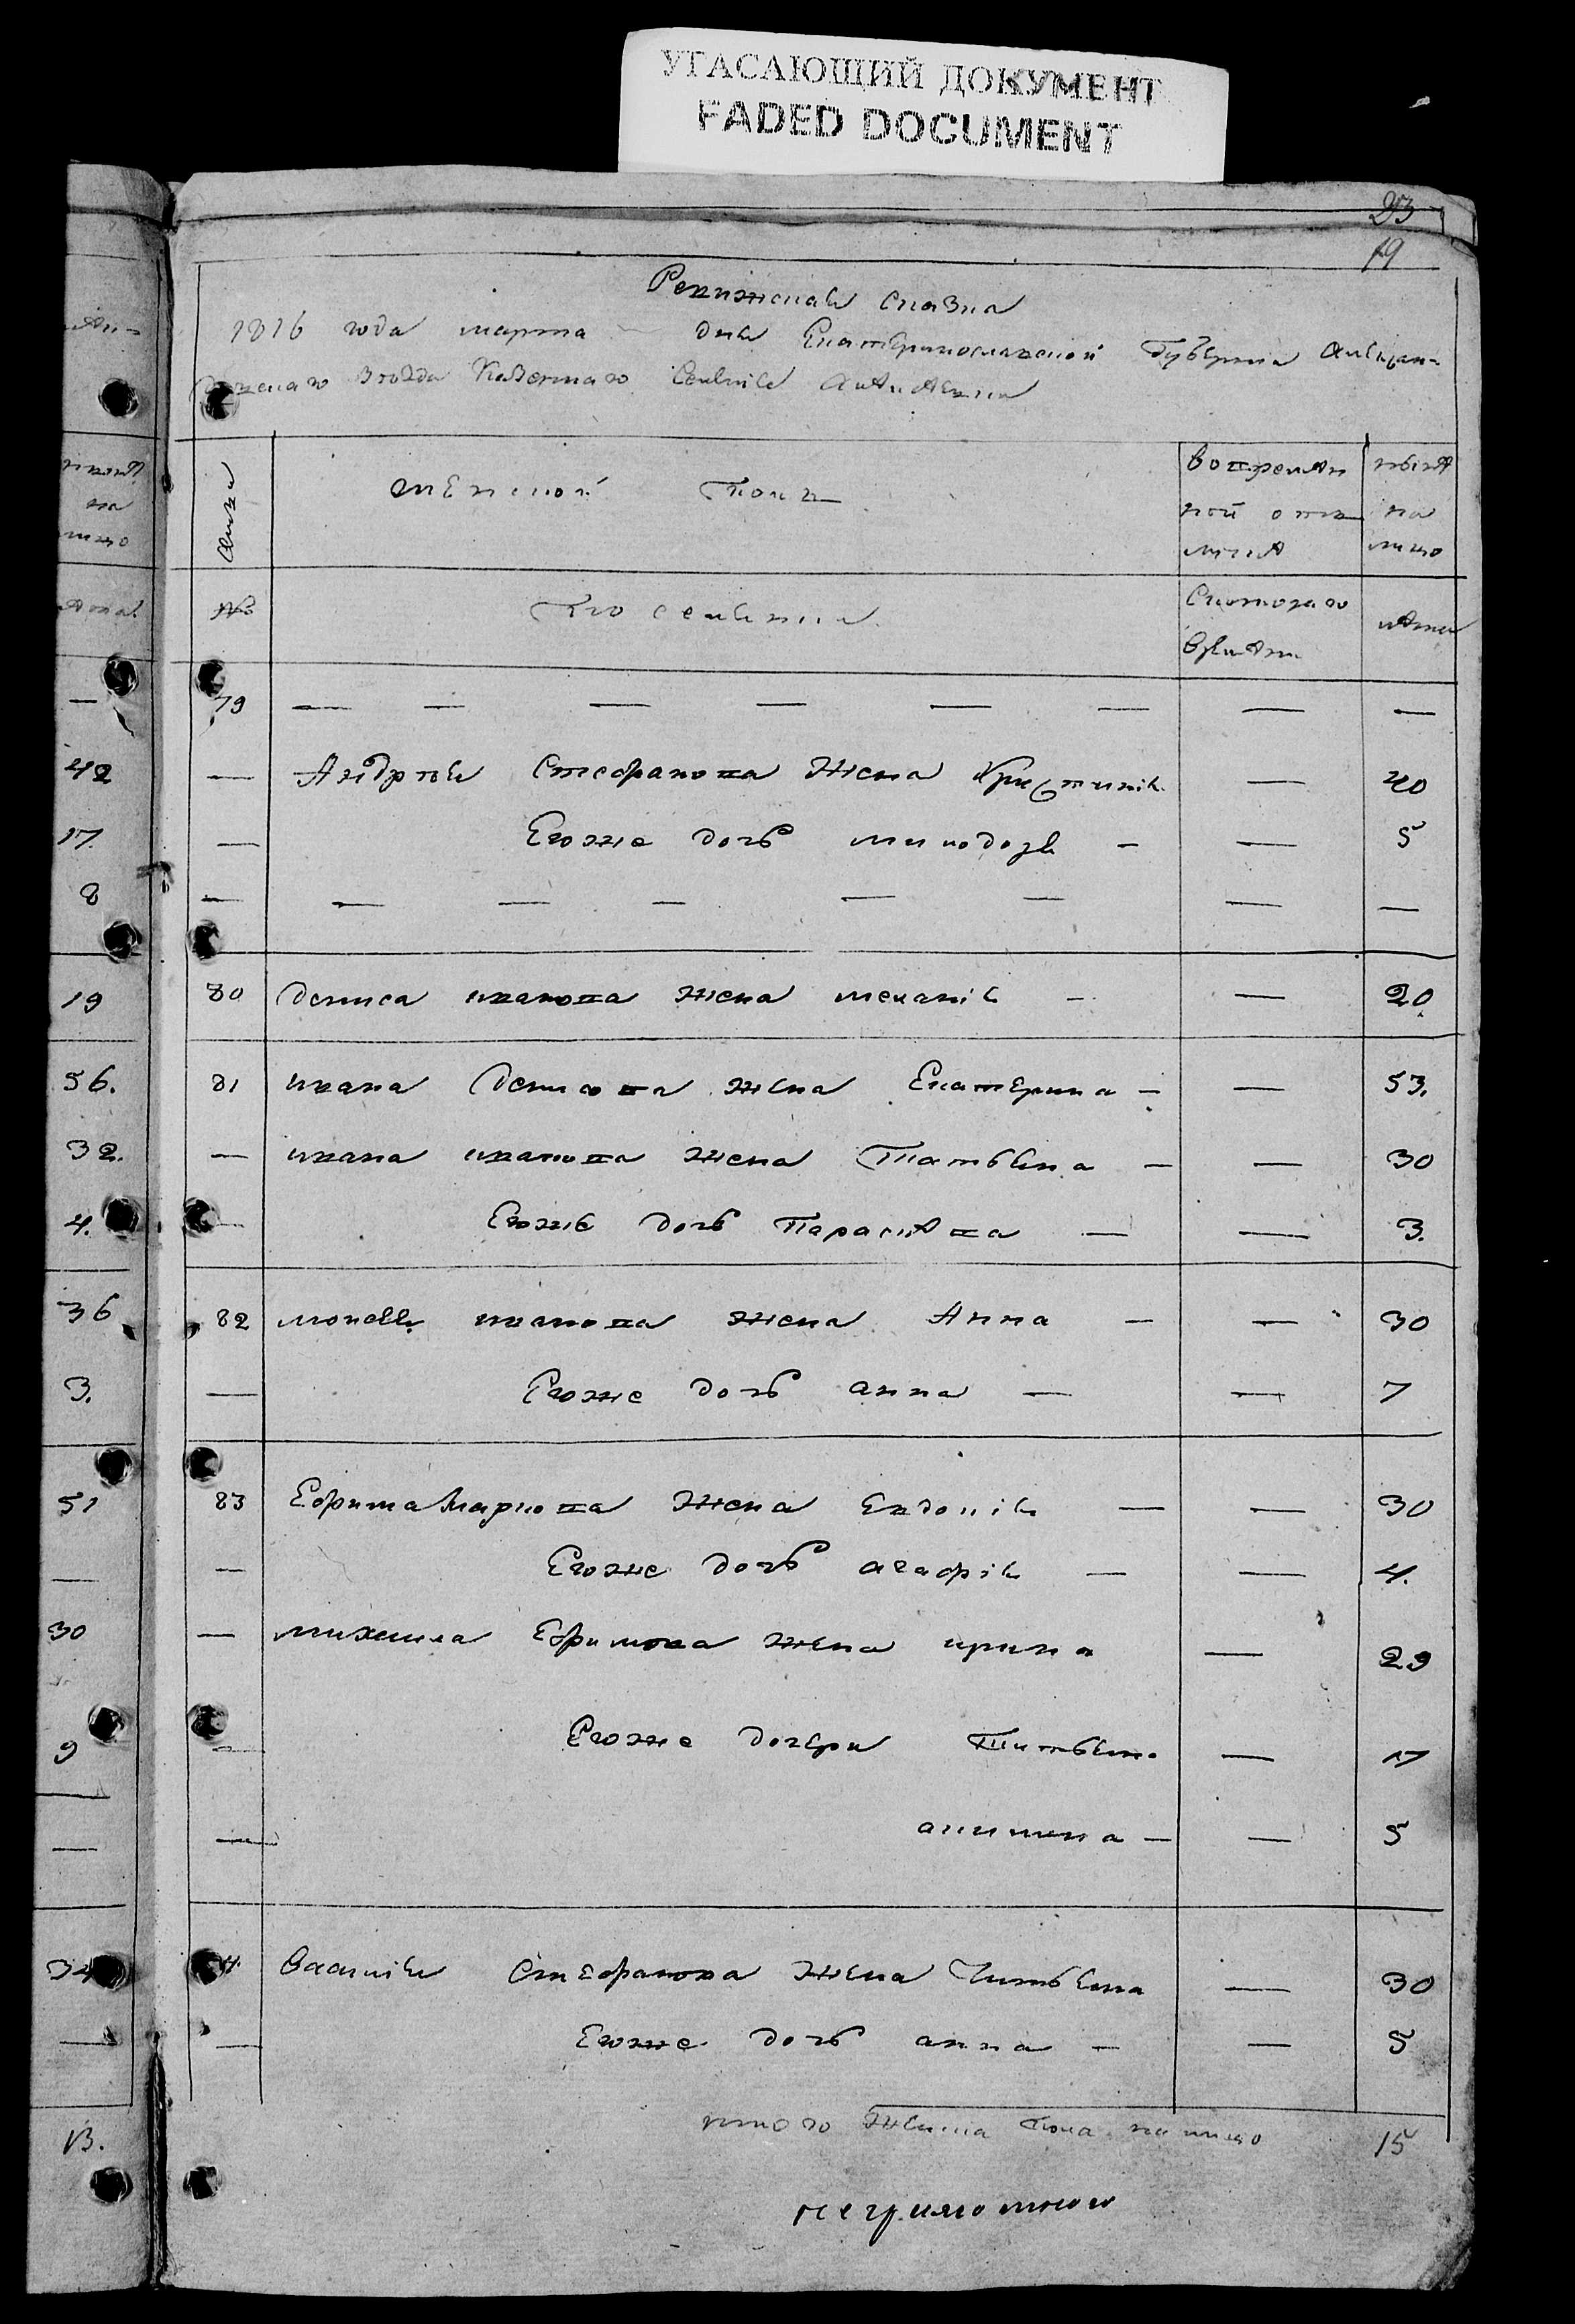 УГАСАЮЩИЙ ДОКУМЕНТ
FADED DOCUMENT
23
19
Ревижская сказка
1816 года марта — дня Екатеринославской Губернии Алексан-
уезда Казенного селения
семья женской полъ во временной отлучке ныне на лицо
№ По селению С которого времени лета
79 — — — — — — — —
42 — Андрея Стефанова жена Христинiя — 40
17. — Егоже дочь Минодоря — — 5
8 — — — — — — — —
19 80 Дениса иванова жена меланiя — — 20
56. 81 ивана Денисова жена Екатерина — — 53.
32. — ивана иванова жена Татьяна — — 30
4. — Егоже дочь Параскѣва — — 3.
36 82 моисея иванова жена Анна — — 30
3. — Егоже дочь анна — — 7
51 83 Ефима Маркова жена Евдокiя — — 30
— — Егоже дочь агафiя — — 4.
30 — михаила Ефимова жена ирина — 29
9 — Егоже дочери Татьяна — 17
— — акилина — — 5
34 Василiя Стефанова жена Татьяна — 30
— — Егоже дочь анна — — 5
13. итого женска пола на лицо 15